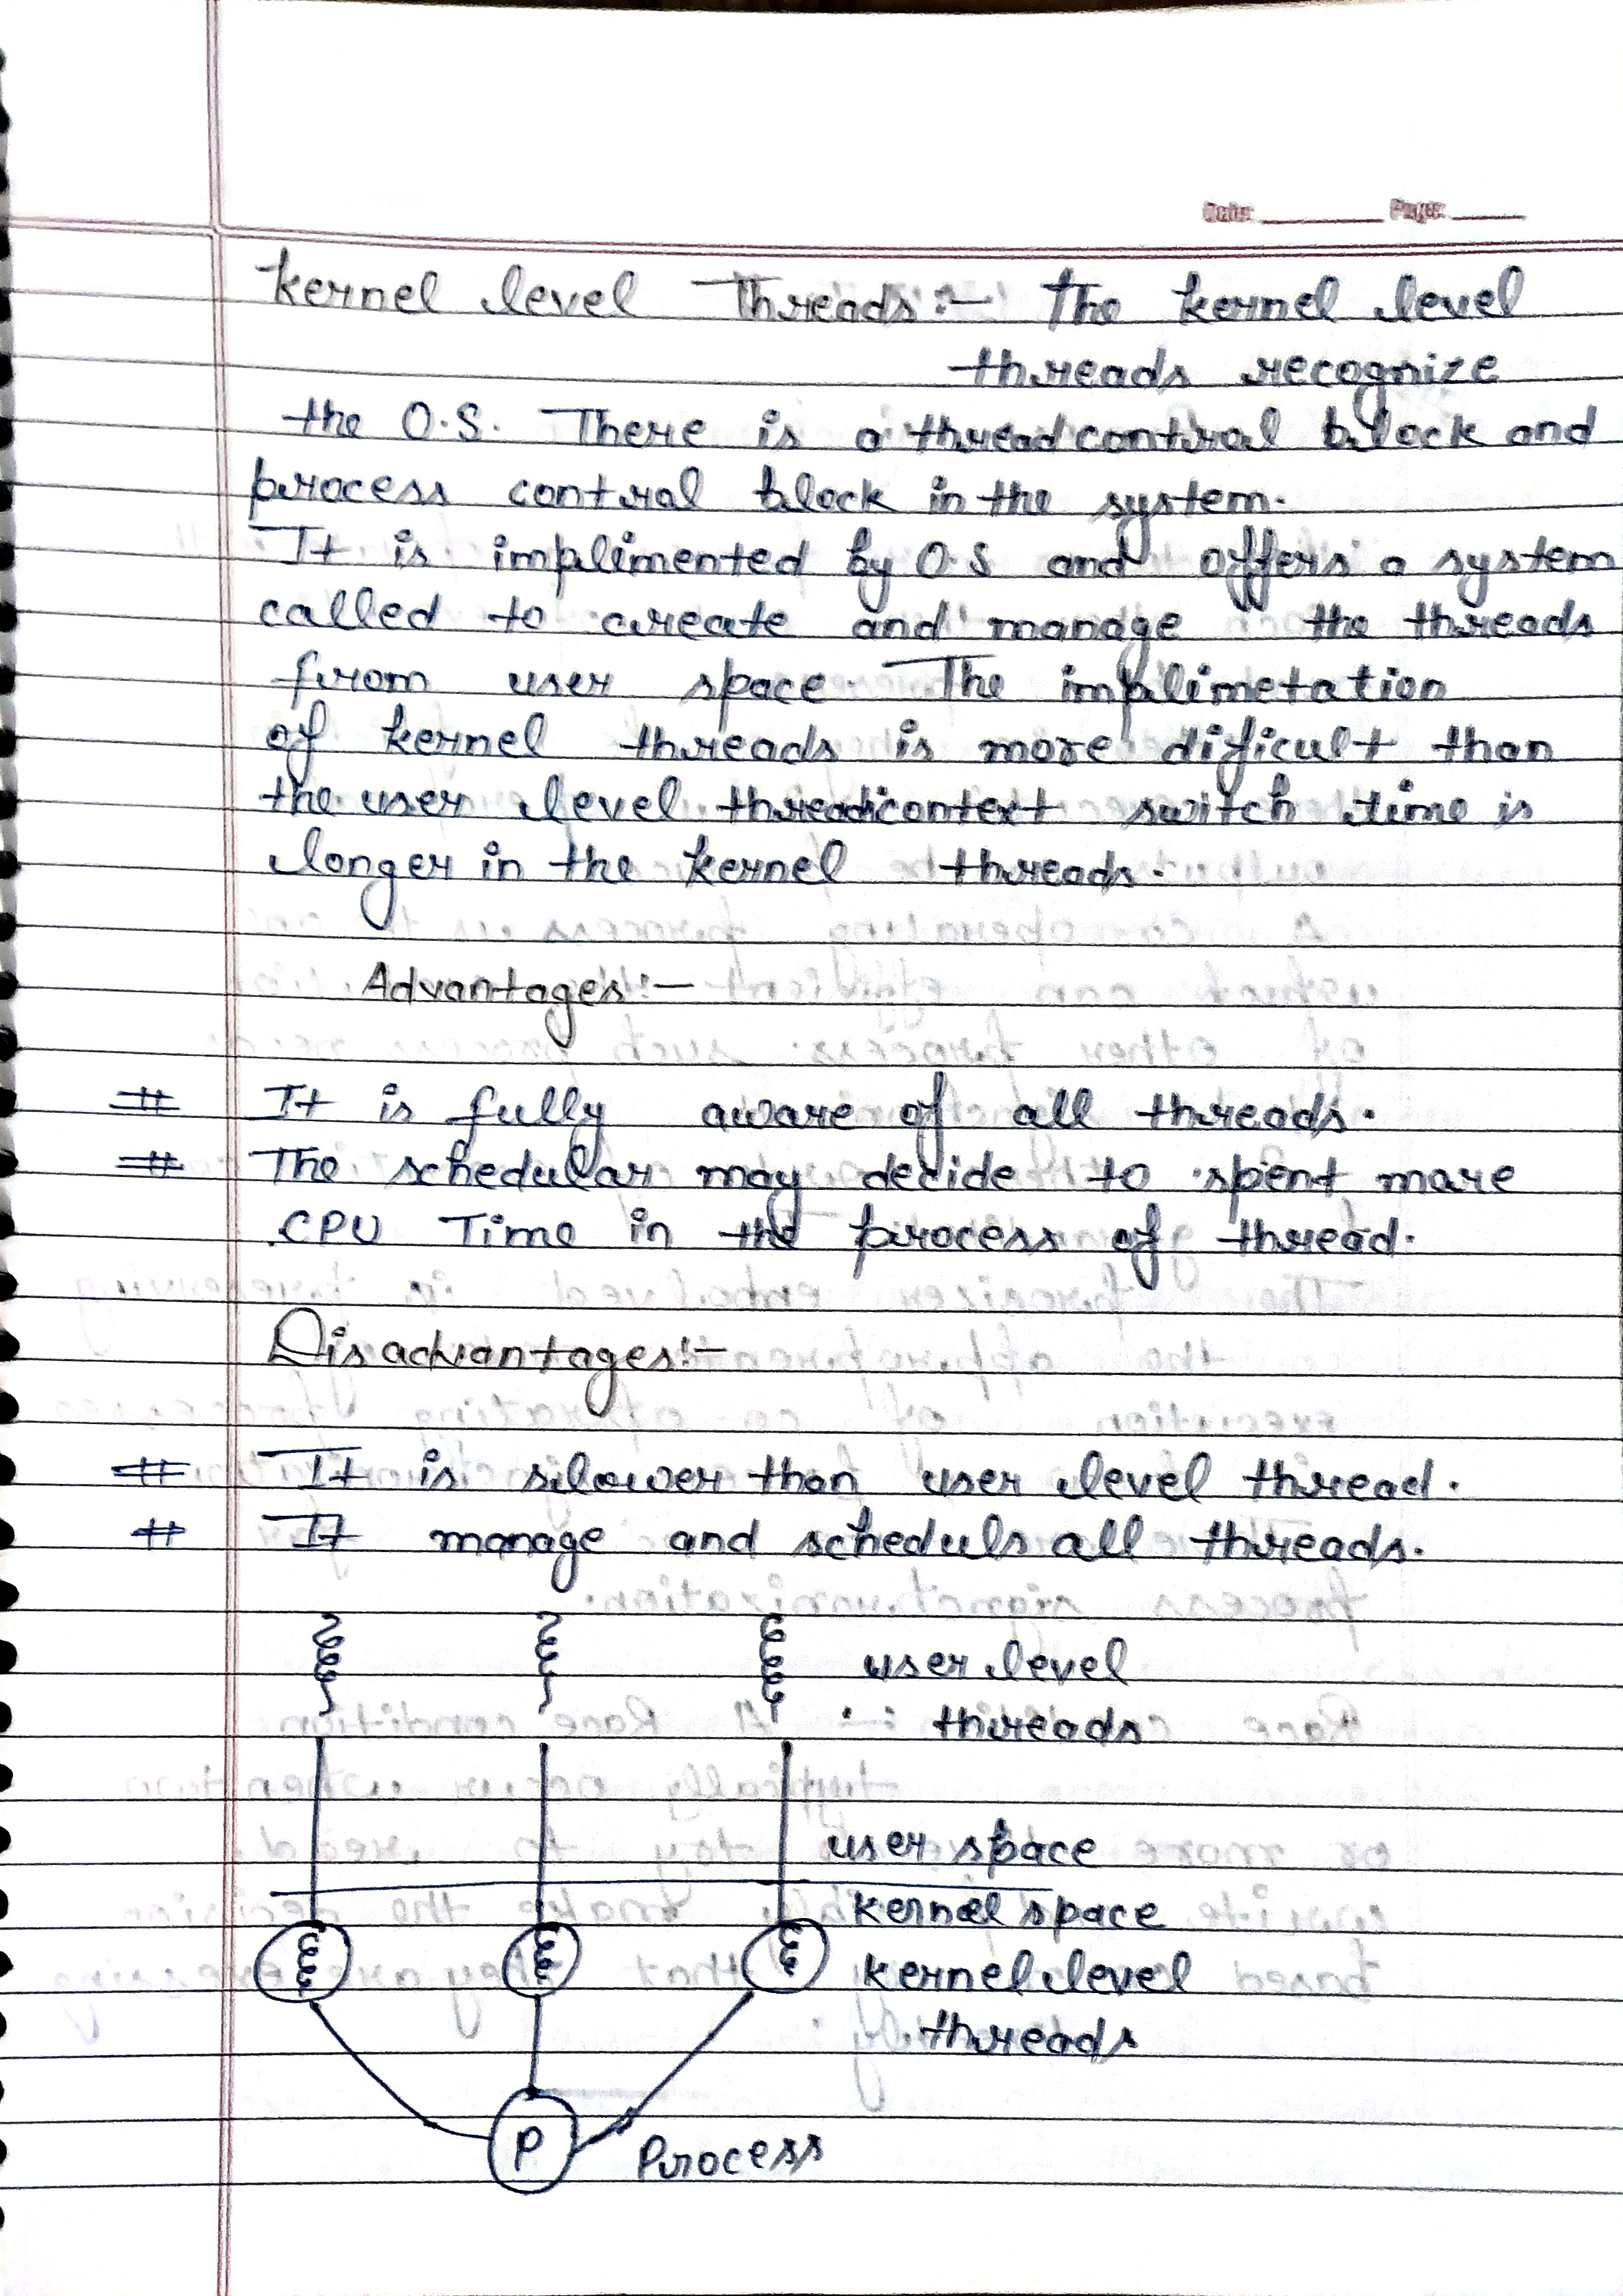 Date: Page:
kernel level Threads:- The kernel level
threads recognize
the O.S. There is a thread control block and
process control block in the system.
It is implimented by O.S and offers a system
called to create and manage the threads
from user space. The implimetation
of kernel threads is more dificult than
the user level thread context switch time is
longer in the kernel threads.
Advantages:-
# It is fully aware of all threads.
# The schedular may decide to spent more
CPU Time in the process of thread.
Disadvantages:-
# It is slower than user level thread.
# It manage and scheduls all threads.
user level
threads
user space
kernel space
kernel level
threads
P Process